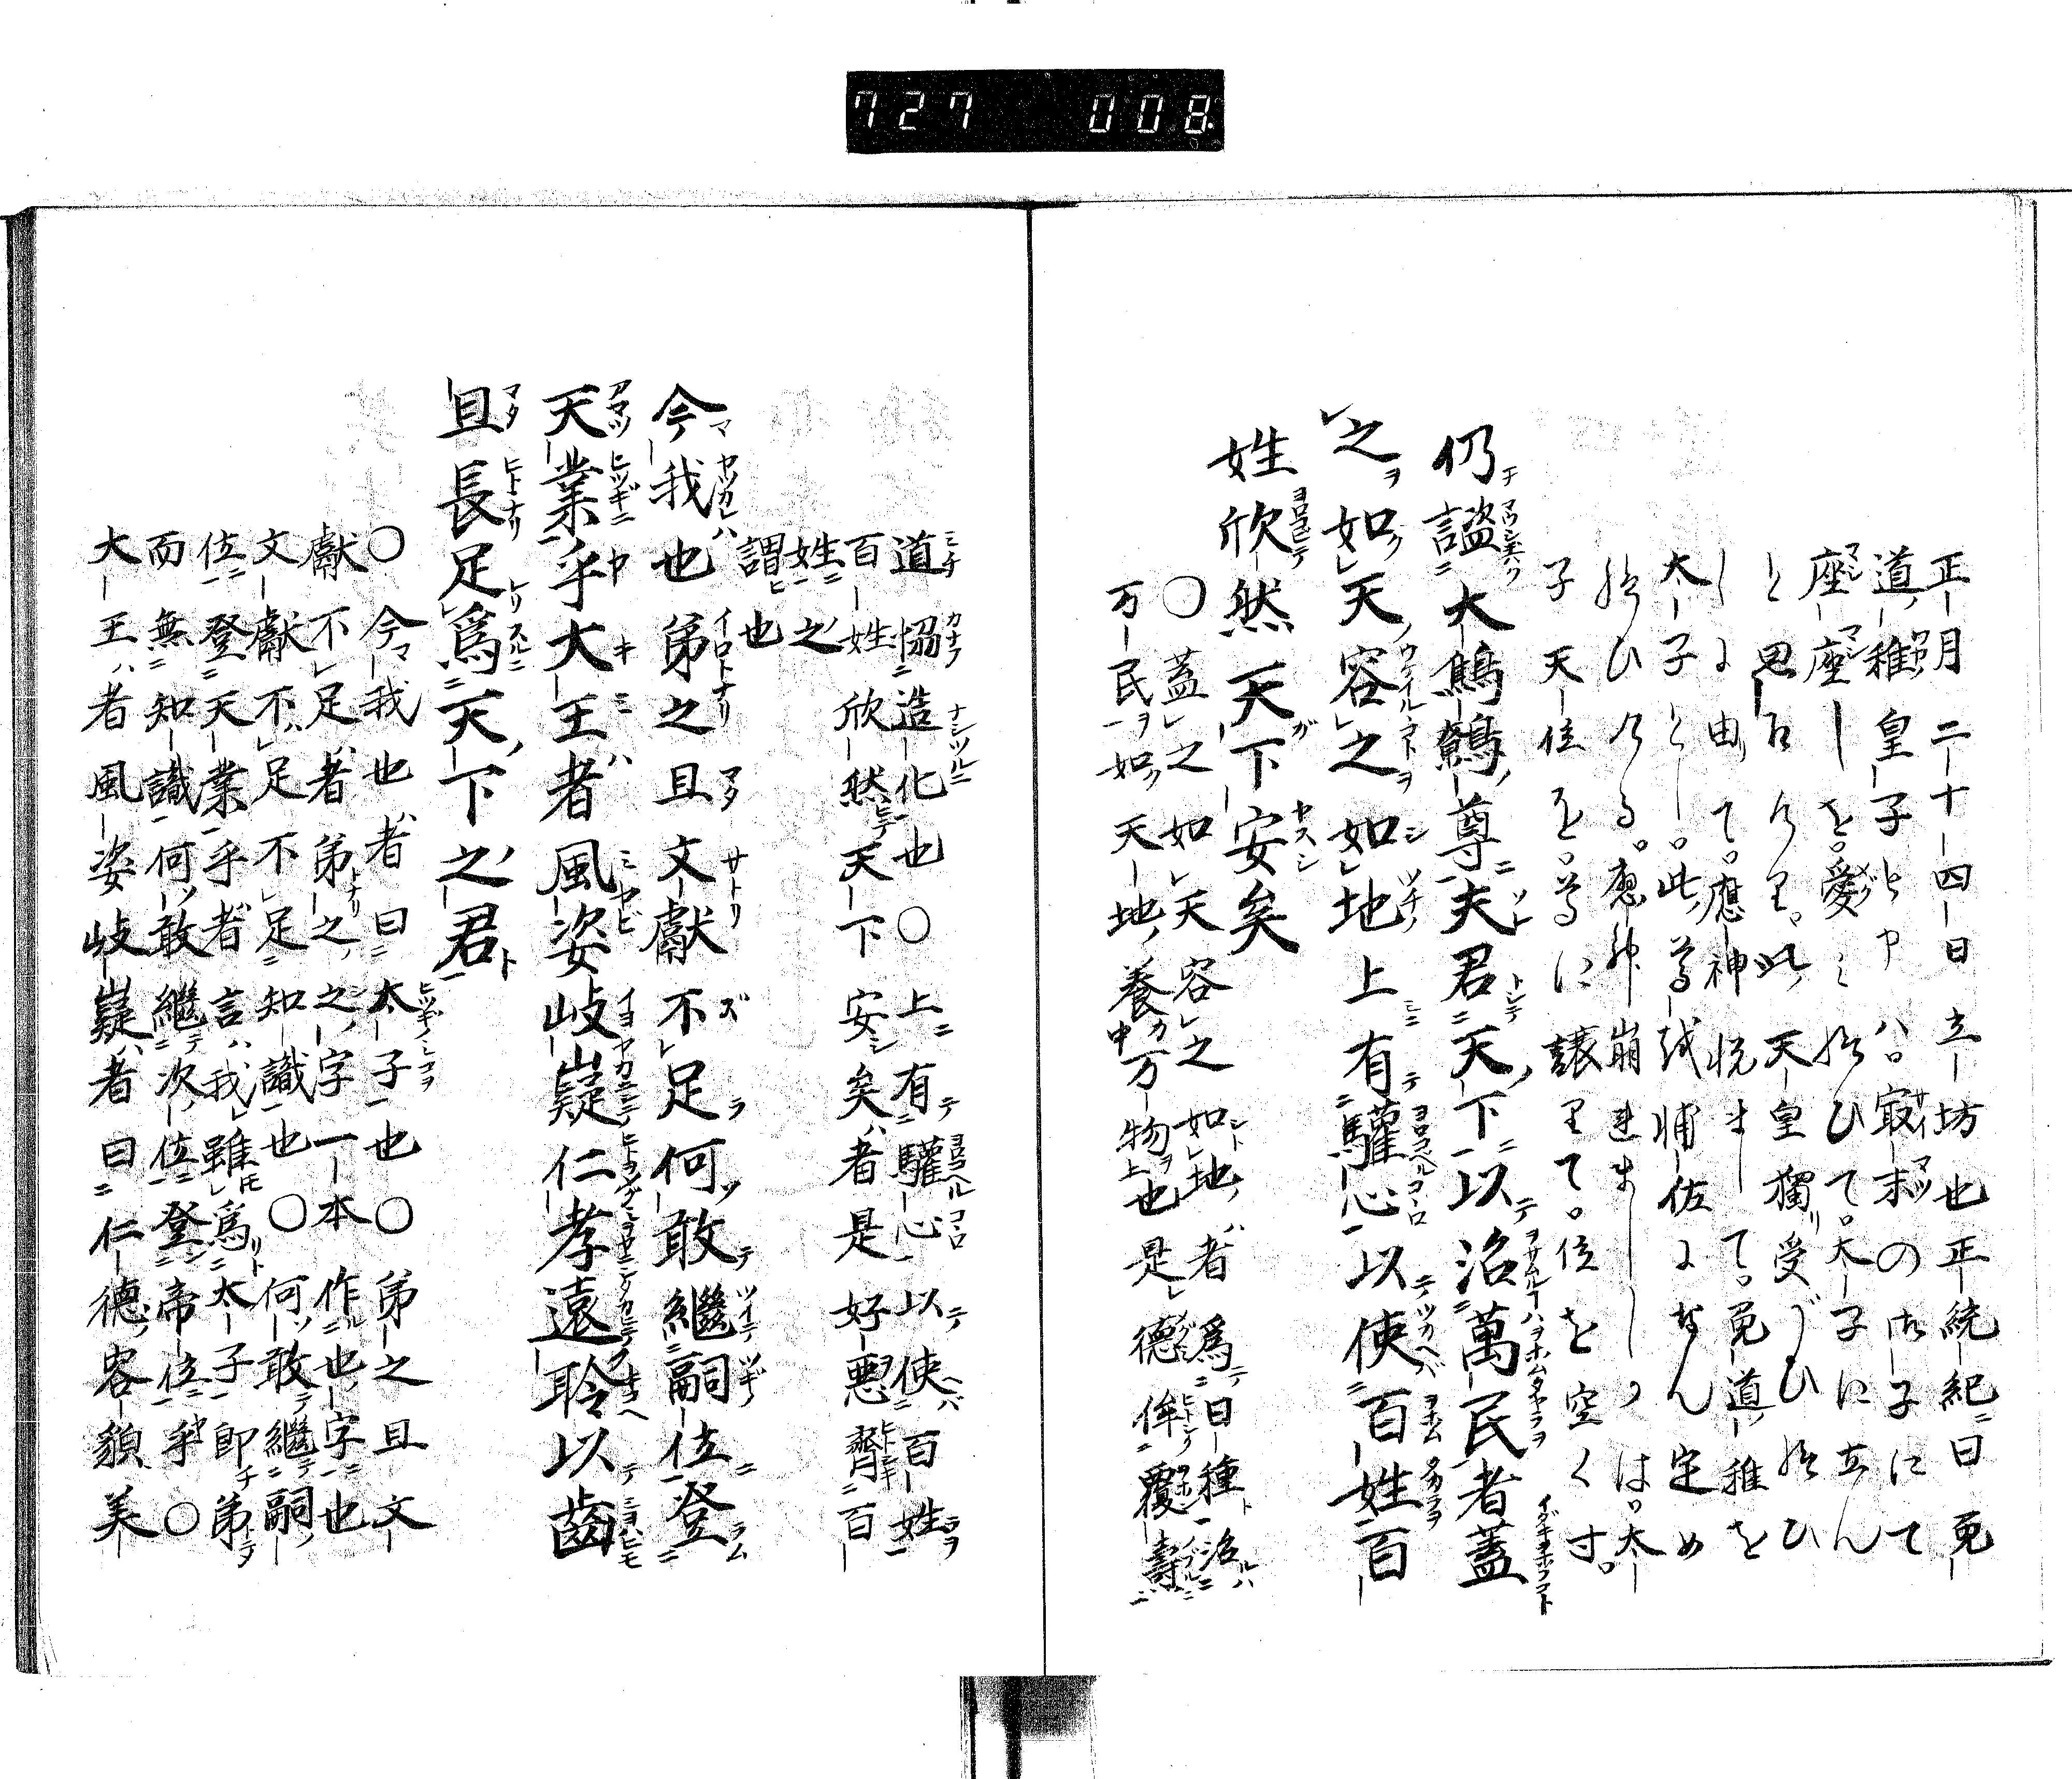 727 008
正月二十四日立坊也正統紀曰菟
道稚皇子と申ハ最末の御子にて
座座しを愛し給ひて太子に立ん
と思召けり此天皇獨受がひ給ひ
しに由て應神悦まして菟道稚を
太子とし此尊を輔佐になん定め
給ひける應神崩れましゝかは太
子天位を尊に譲りて位を空くす
仍謚大鷦鷯尊夫君天下以治萬民者蓋
之如天容之如地上有驩心以使百姓百
姓欣然天下安矣
○蓋之如天容之如地者為曰種治
万民如天地養万物也是德侔覆壽
道恊造化也○上有驩心以使百姓
百姓欣然天下安矣者是好悪齊百
姓之
謂也
今我也弟之且文獻不足何敢繼嗣位登
天業乎大王者風姿岐嶷仁孝遠聆以齒
且長足為天下之君
○今我也者曰太子也○弟之且文
獻不足者弟之之字一本作也字也
文獻不足不足知識也○何敢繼嗣
位登天業乎者言我雖為太子即弟
而無知識何敢繼次位登帝位乎○
大王者風姿岐嶷者曰仁德容貌美